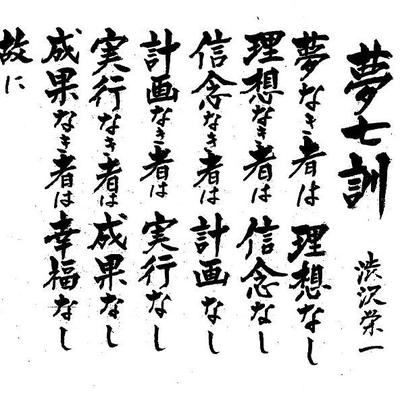 夢七訓
渋沢栄一
夢なき者は理想なし
理想なき者は信念なし
信念なき者は計画なし
計画なき者は実行なし
実行なき者は成果なし
成果なき者は幸福なし
故に